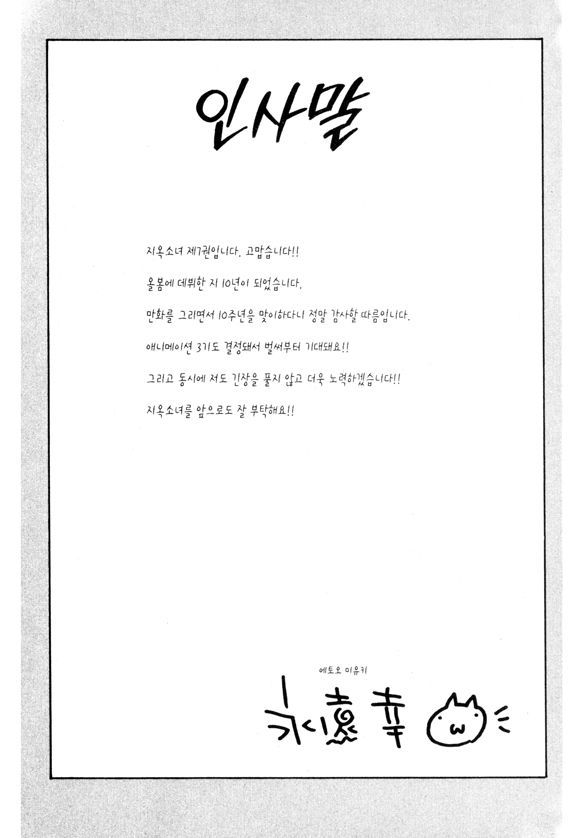 인사말
지옥소녀 제7권입니다. 고맙습니다!!
올봄에 데뷔한 지 10년이 되었습니다.
만화를 그리면서 10주년을 맞이하다니 정말 감사할 따름입니다.
애니메이션 3기도 결정돼서 벌써부터 기대돼요!!
그리고 동시에 저도 긴장을 풀지 않고 더욱 노력하겠습니다!!
지옥소녀를 앞으로도 잘 부탁해요!!
에토오 미유키
永遠幸